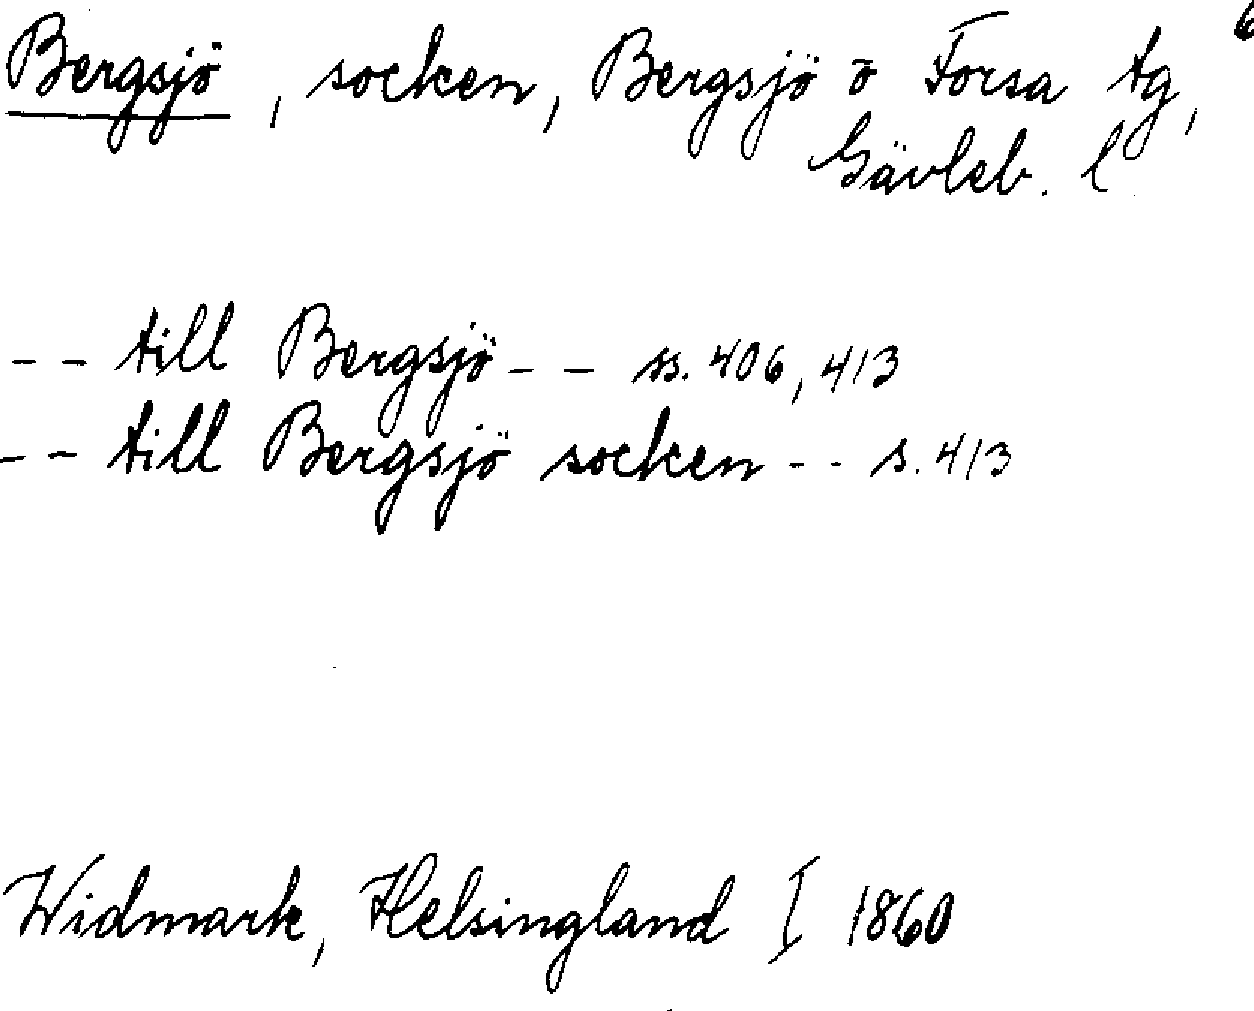 Bergsjö, socken, Bergsjö o Forsa tg,
Gävleb. l
-- till Bergsjö -- ss. 406, 413
-- till Bergsjö socken -- s. 413
Widmark, Helsingland I 1860